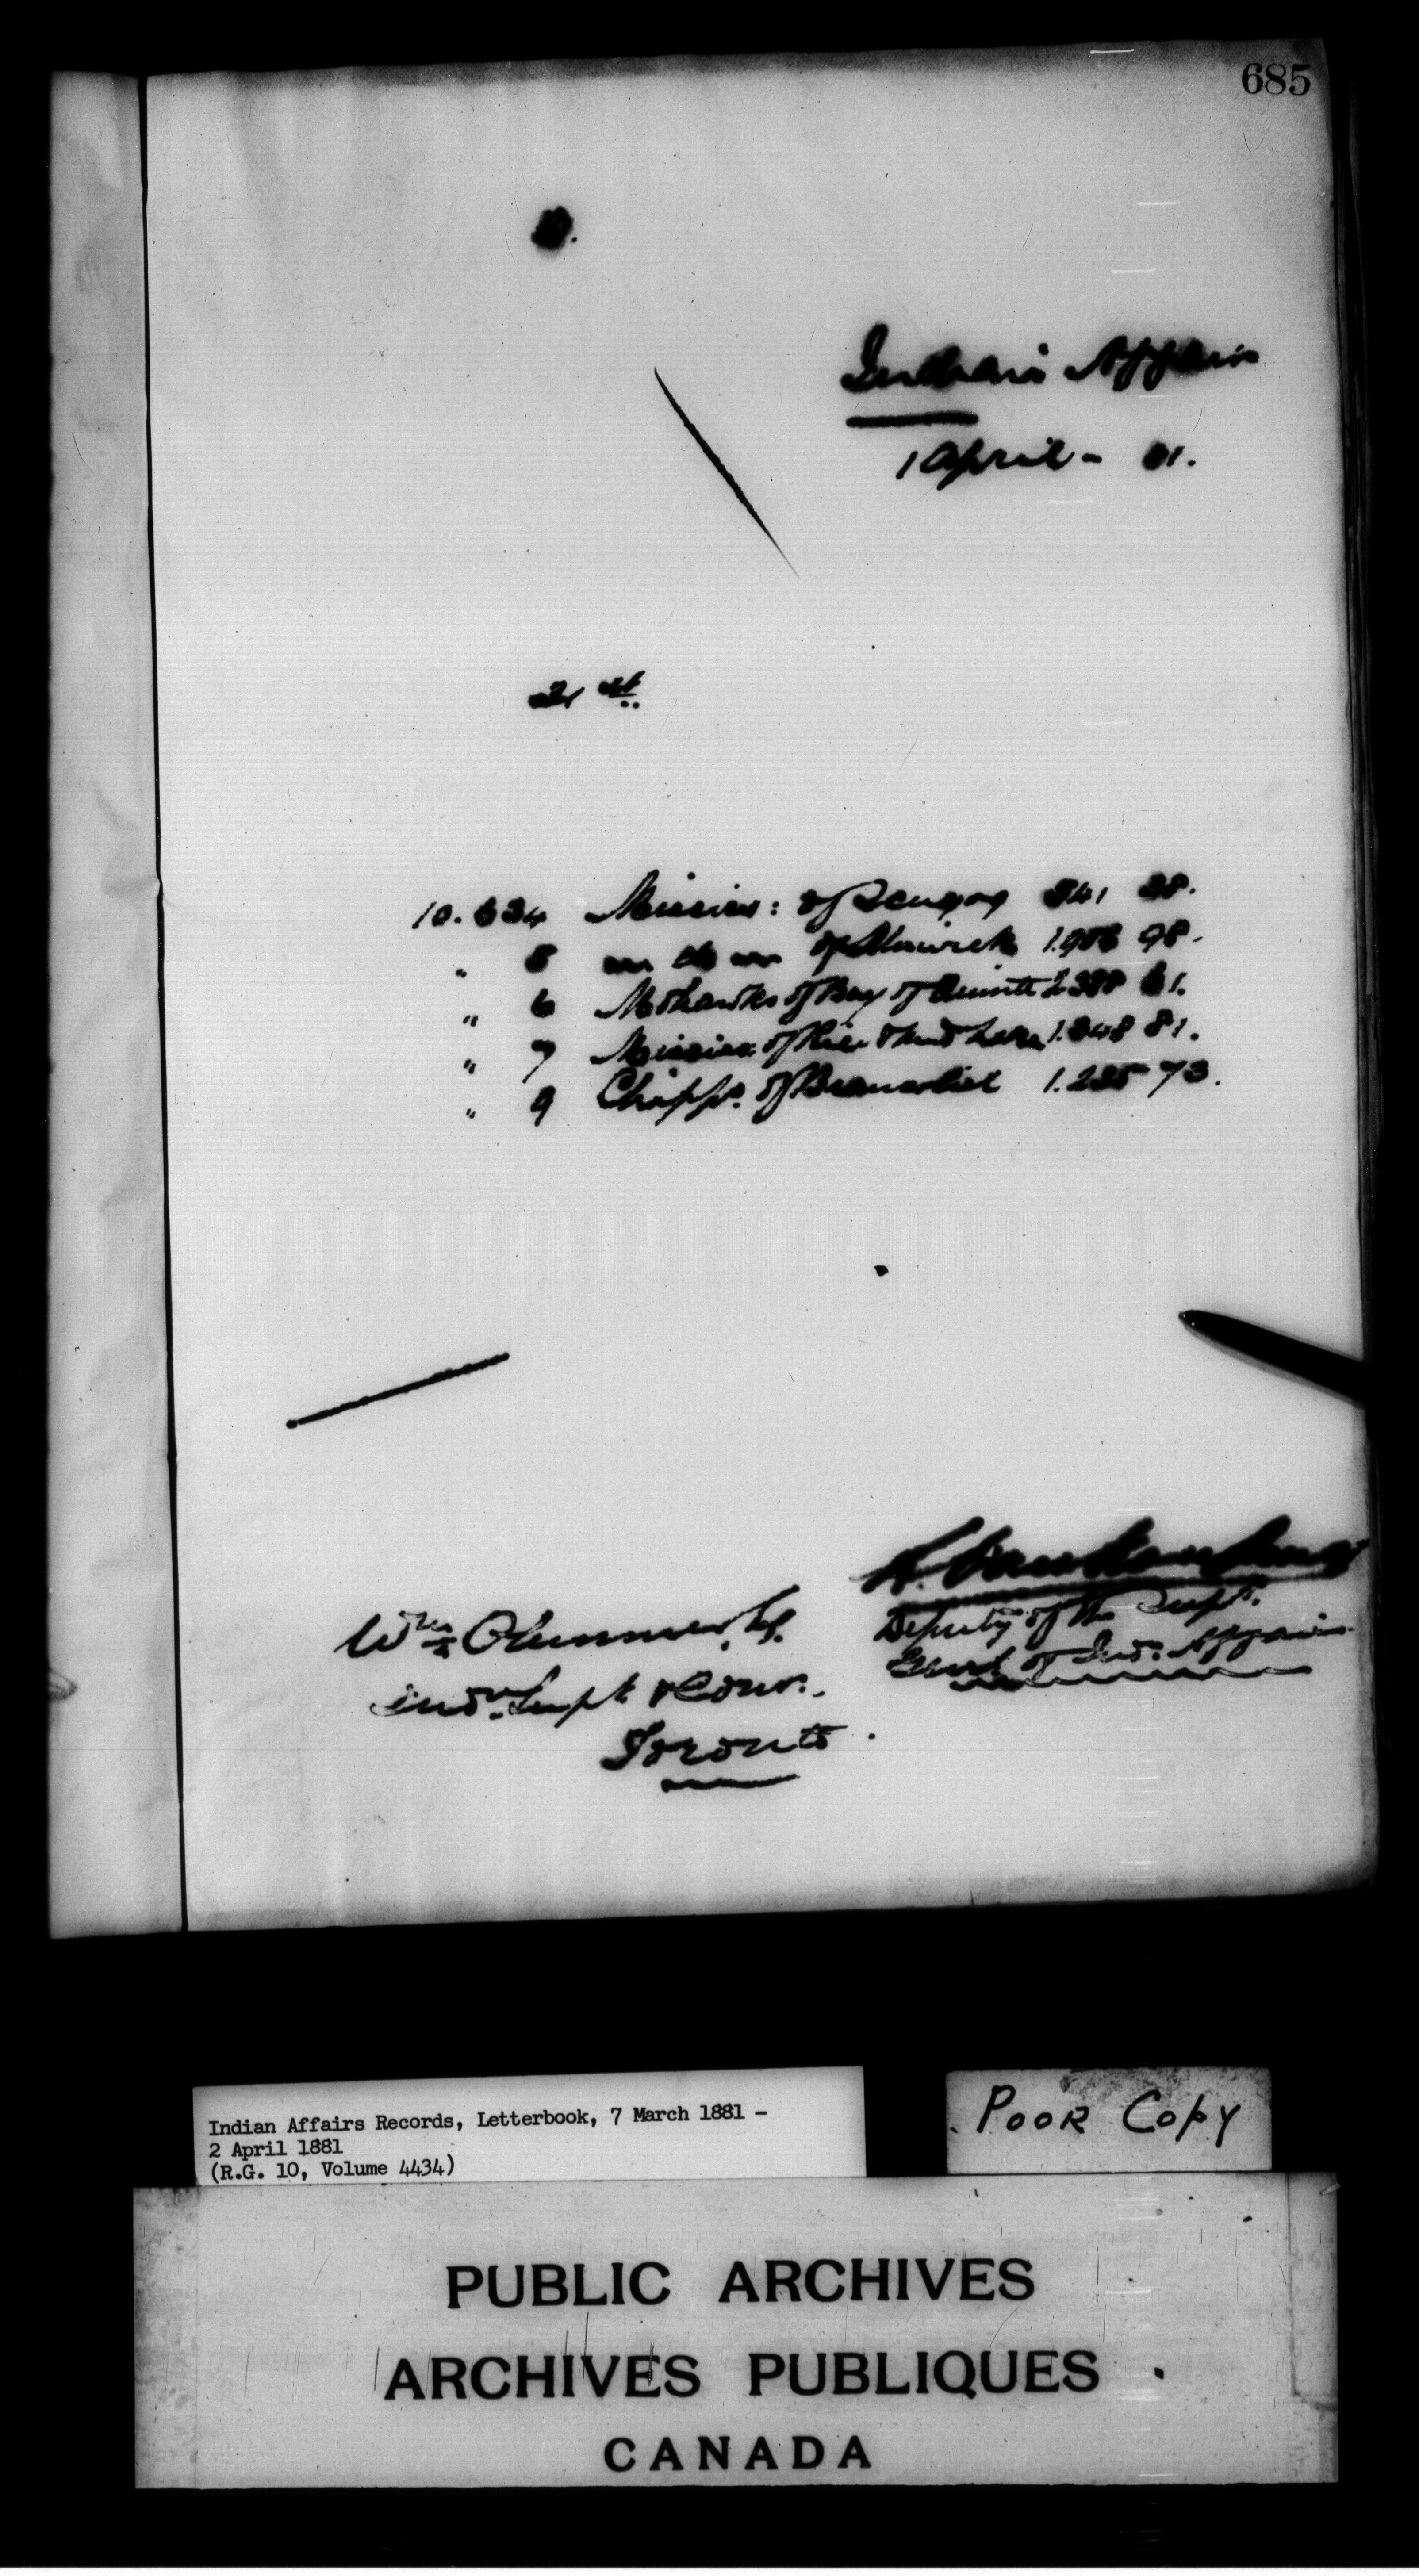 685
Indian Affairs
1 April - 81.
21 st
10.634 Mississ: of Scugog 841 38.
" 5 " do " of Alnwick 1.906 98.
" 6 Mohawks of Bay of Quinte 2388 61.
" 7 Mississ: of Rice & Mud Lakes 1.848 81.
" 9 Chipps. of Beausoliel 1.235 73.
L. Vankoughnet
Deputy of the Supt.
Genl. of Ind. Affairs
Wm Plummer, Esq.
Indn. Supt. & Comr.
Toronto.
Indian Affairs Records, Letterbook, 7 March 1881 -
2 April 1881
(R.G. 10, Volume 4434)
Poor Copy
PUBLIC ARCHIVES
ARCHIVES PUBLIQUES
CANADA